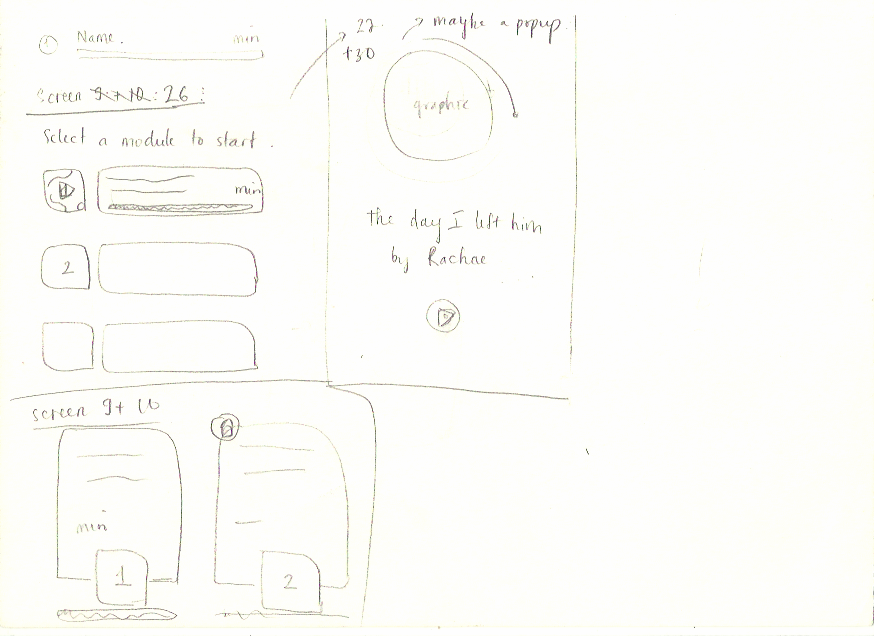 Name. min
Screen 9+10: 26:
Select a module to start.
min
2
27
+30
maybe a popup
graphic
the day I left him
by Rachae
Screen 9+10
min
1
2